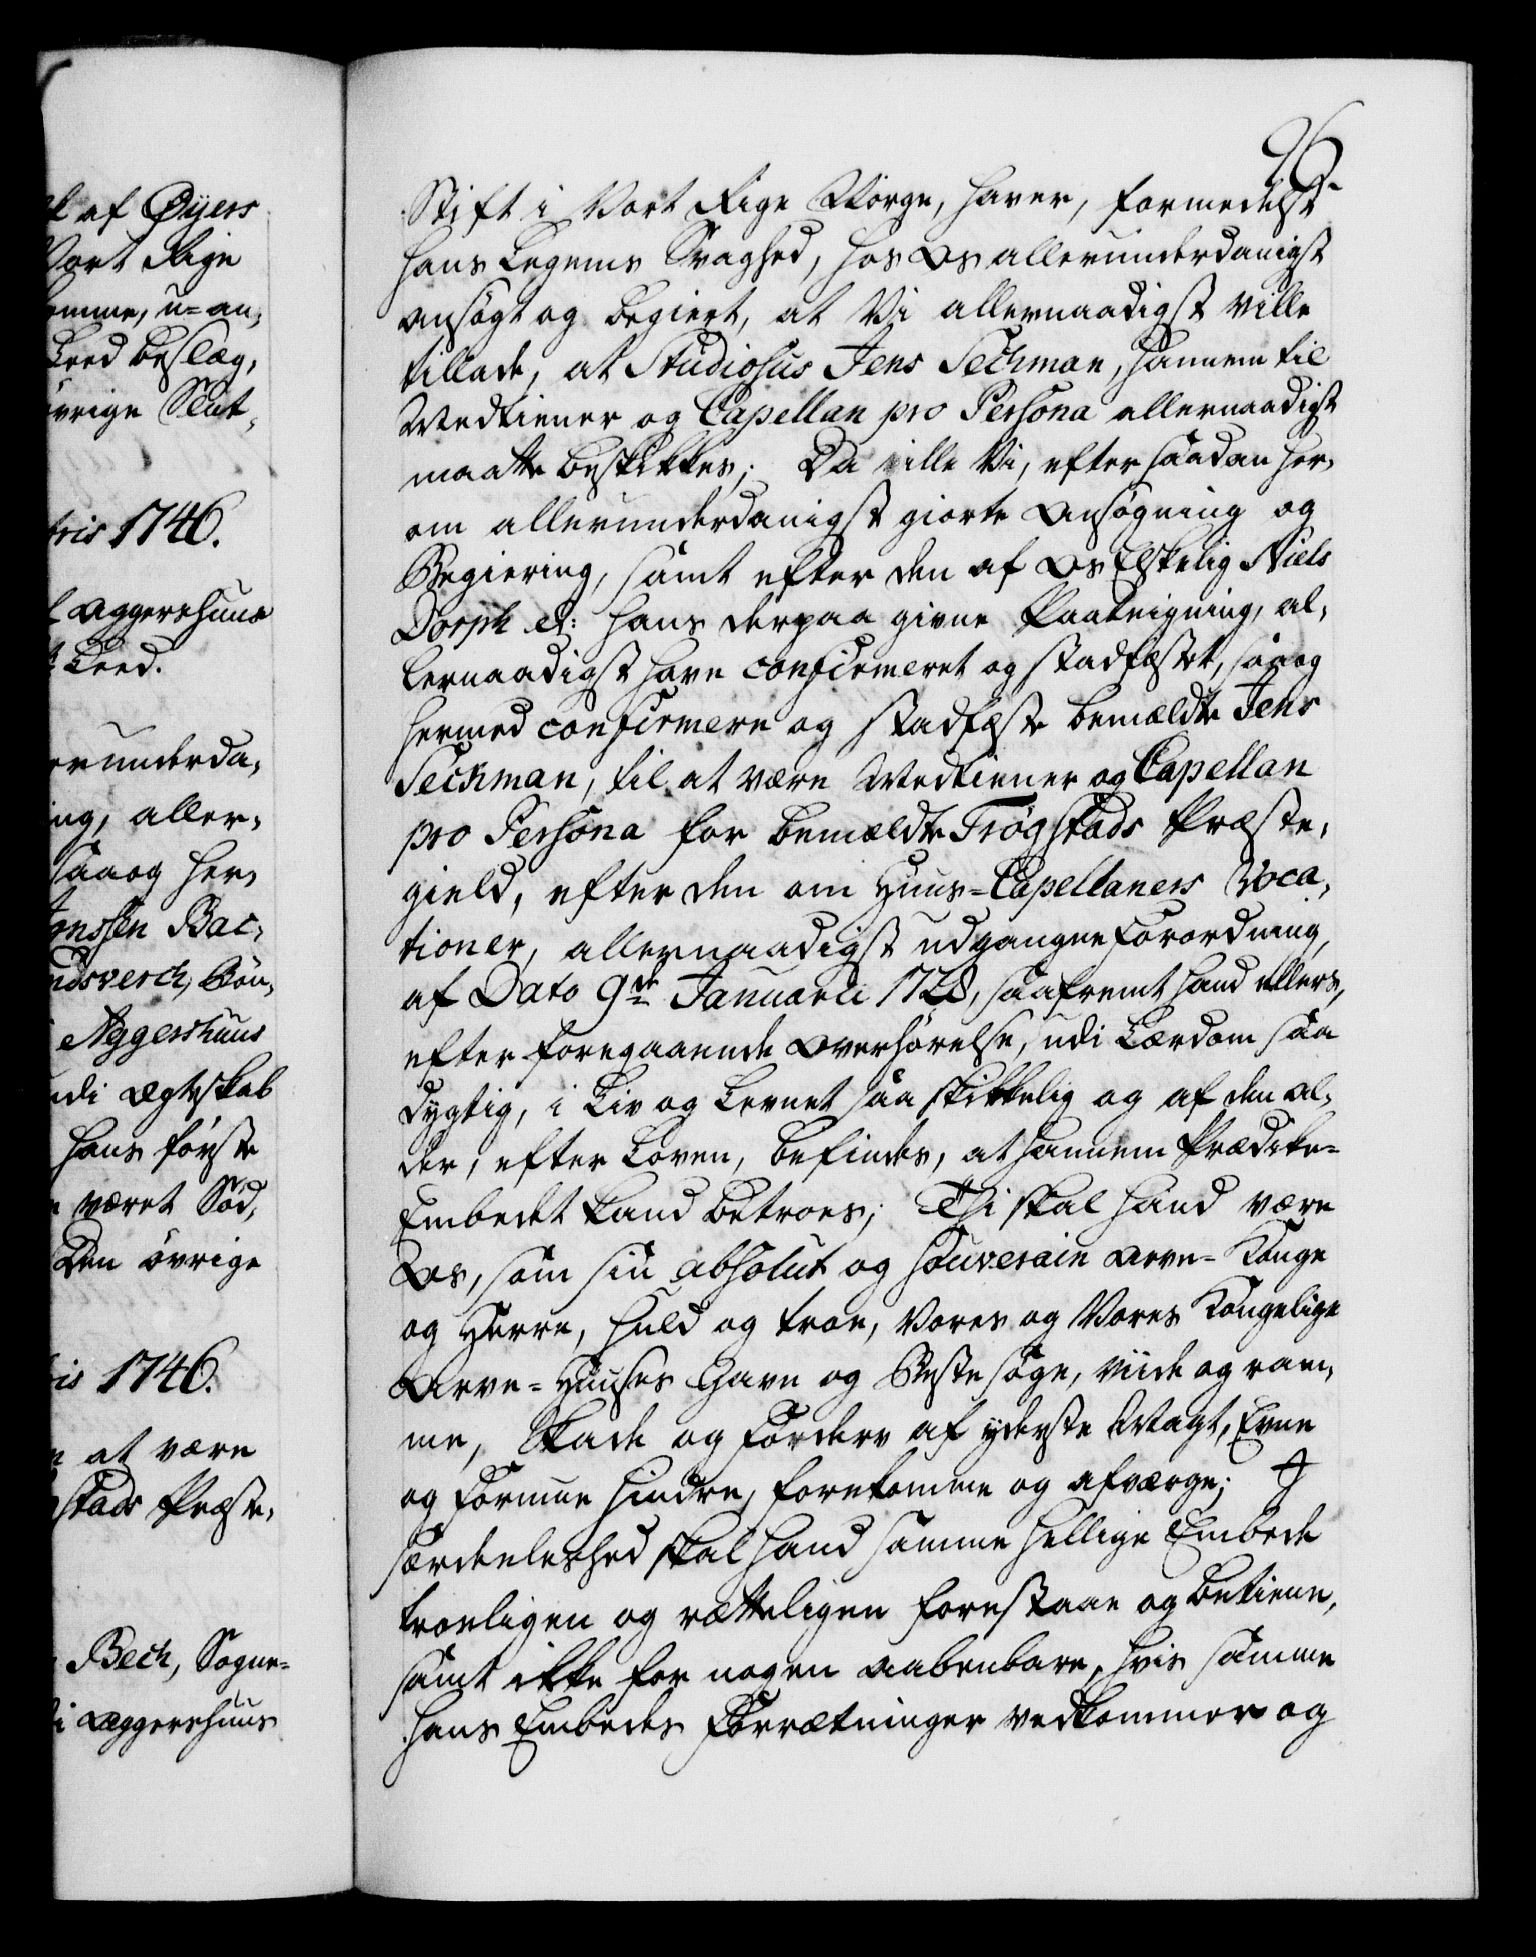 k af Øyers
Vort Rige
komme, u=an,
Leed beslæg,
övrige Slut,
tris 1746.
l Aggershuus
Leed.
erunderda,
ing, aller,
saaog her,
Jenssen Bac,
ndsverch, Bön,
Aggershuus
udi Ægteskab
hans første
været Sød,
Den övrige
ris 1746.
at være
stads Præste,
Bech, Sogne=
i Aggershuus
96
Stift i Vort Rige Norge, haver, formedelst
hans Legems Svaghed, hos Os allerunderdanigst
ansøgt og begiert, at Vi allernaadigst ville
tillade, at Studiosus Jens Sechman, hannem til
Medtiener og Capellan pro Persona allernaadigst
maatte beskikkes; Da ville Vi, efter saadan her,
om allerunderdanigst giorte Ansøgning og
Begiering, samt efter den af Os Elskelig Niels
Dorph &: hans derpaa givne Paateigning, al,
lernaadigst have confirmeret og stadfæstet, saaog
hermed confirmere og stadfæste bemældte Jens
Sechman, til at være Medtiener og Capellan
pro Persona for bemældte Trøgstads Præste,
gield, efter den om Huus=Capellaners Voca,
tioner, allernaadigst udgangne Forordning,
af Dato 9de Januarii 1728, saafremt hand ellers,
efter foregaaende Overhørelse, udi Lærdom saa
dygtig, i Liv og Levnet saa skikkelig og af den Al,
der, efter Loven, befindes, at hannem Prædike=
Embedet kand betroes; Thi skal hand være
Os, som sin absolut og souverain Arve=Konge
og Herre, huld og troe, Vores og Vores Kongelige
Arve=Huuses Gavn og Beste søge, viide og ram,
me, Skade og Forderv af yderste Magt, Evne
og Formue hindre, forekomme og afværge; J
særdeeleshed skal hand samme hellige Embede
troeligen og rætteligen forestaae og betiene,
samt ikke for nogen aabenbare, hvis samme
hans Embedes Forrætninger vedkommer og